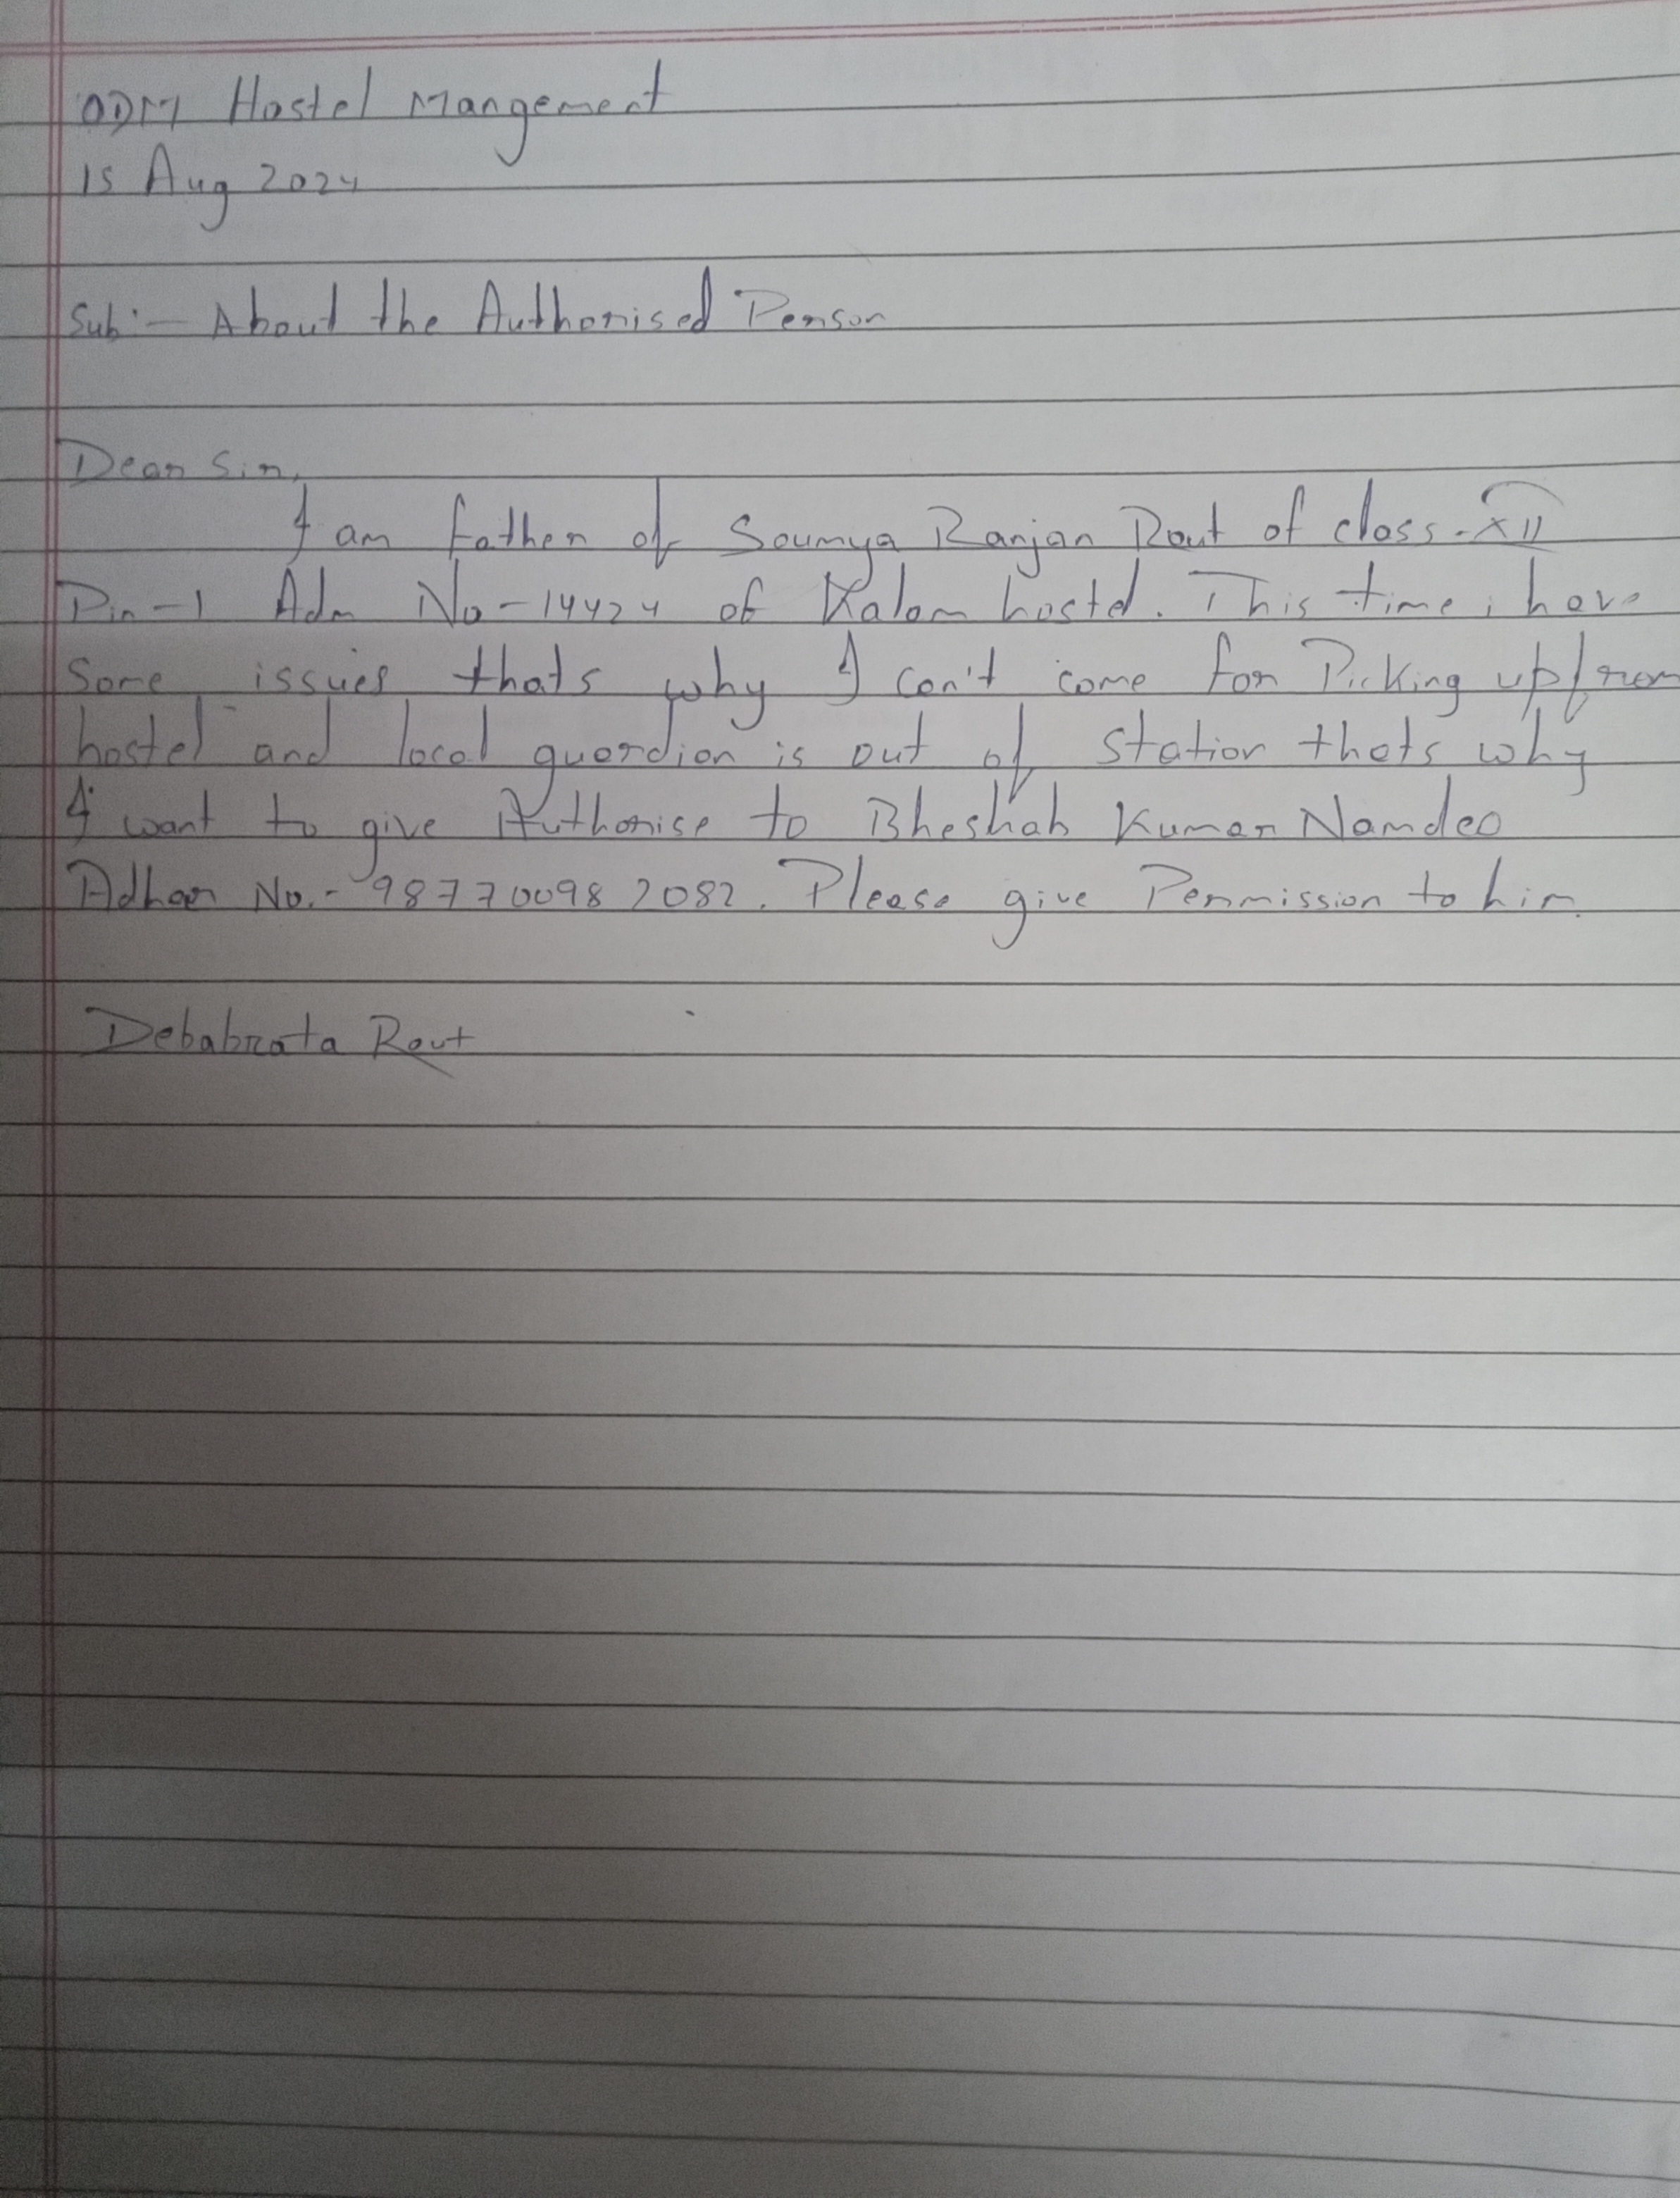 ODM Hostel Mangement
15 Aug 2024
Sub:- About the Authorised Person
Dear Sir,
I am father of Soumya Ranjan Rout of class-XII
Pin-1 Adm No-14424 of Kalam hostel. This time i have
some issues thats why I can't come for Picking up from
hostel and local guardian is out of station thats why
I want to give Authorise to Bheshab Kumar Namdeo
Adhaar No.- 987700982082. Please give Permission to him.
Debabrata Rout